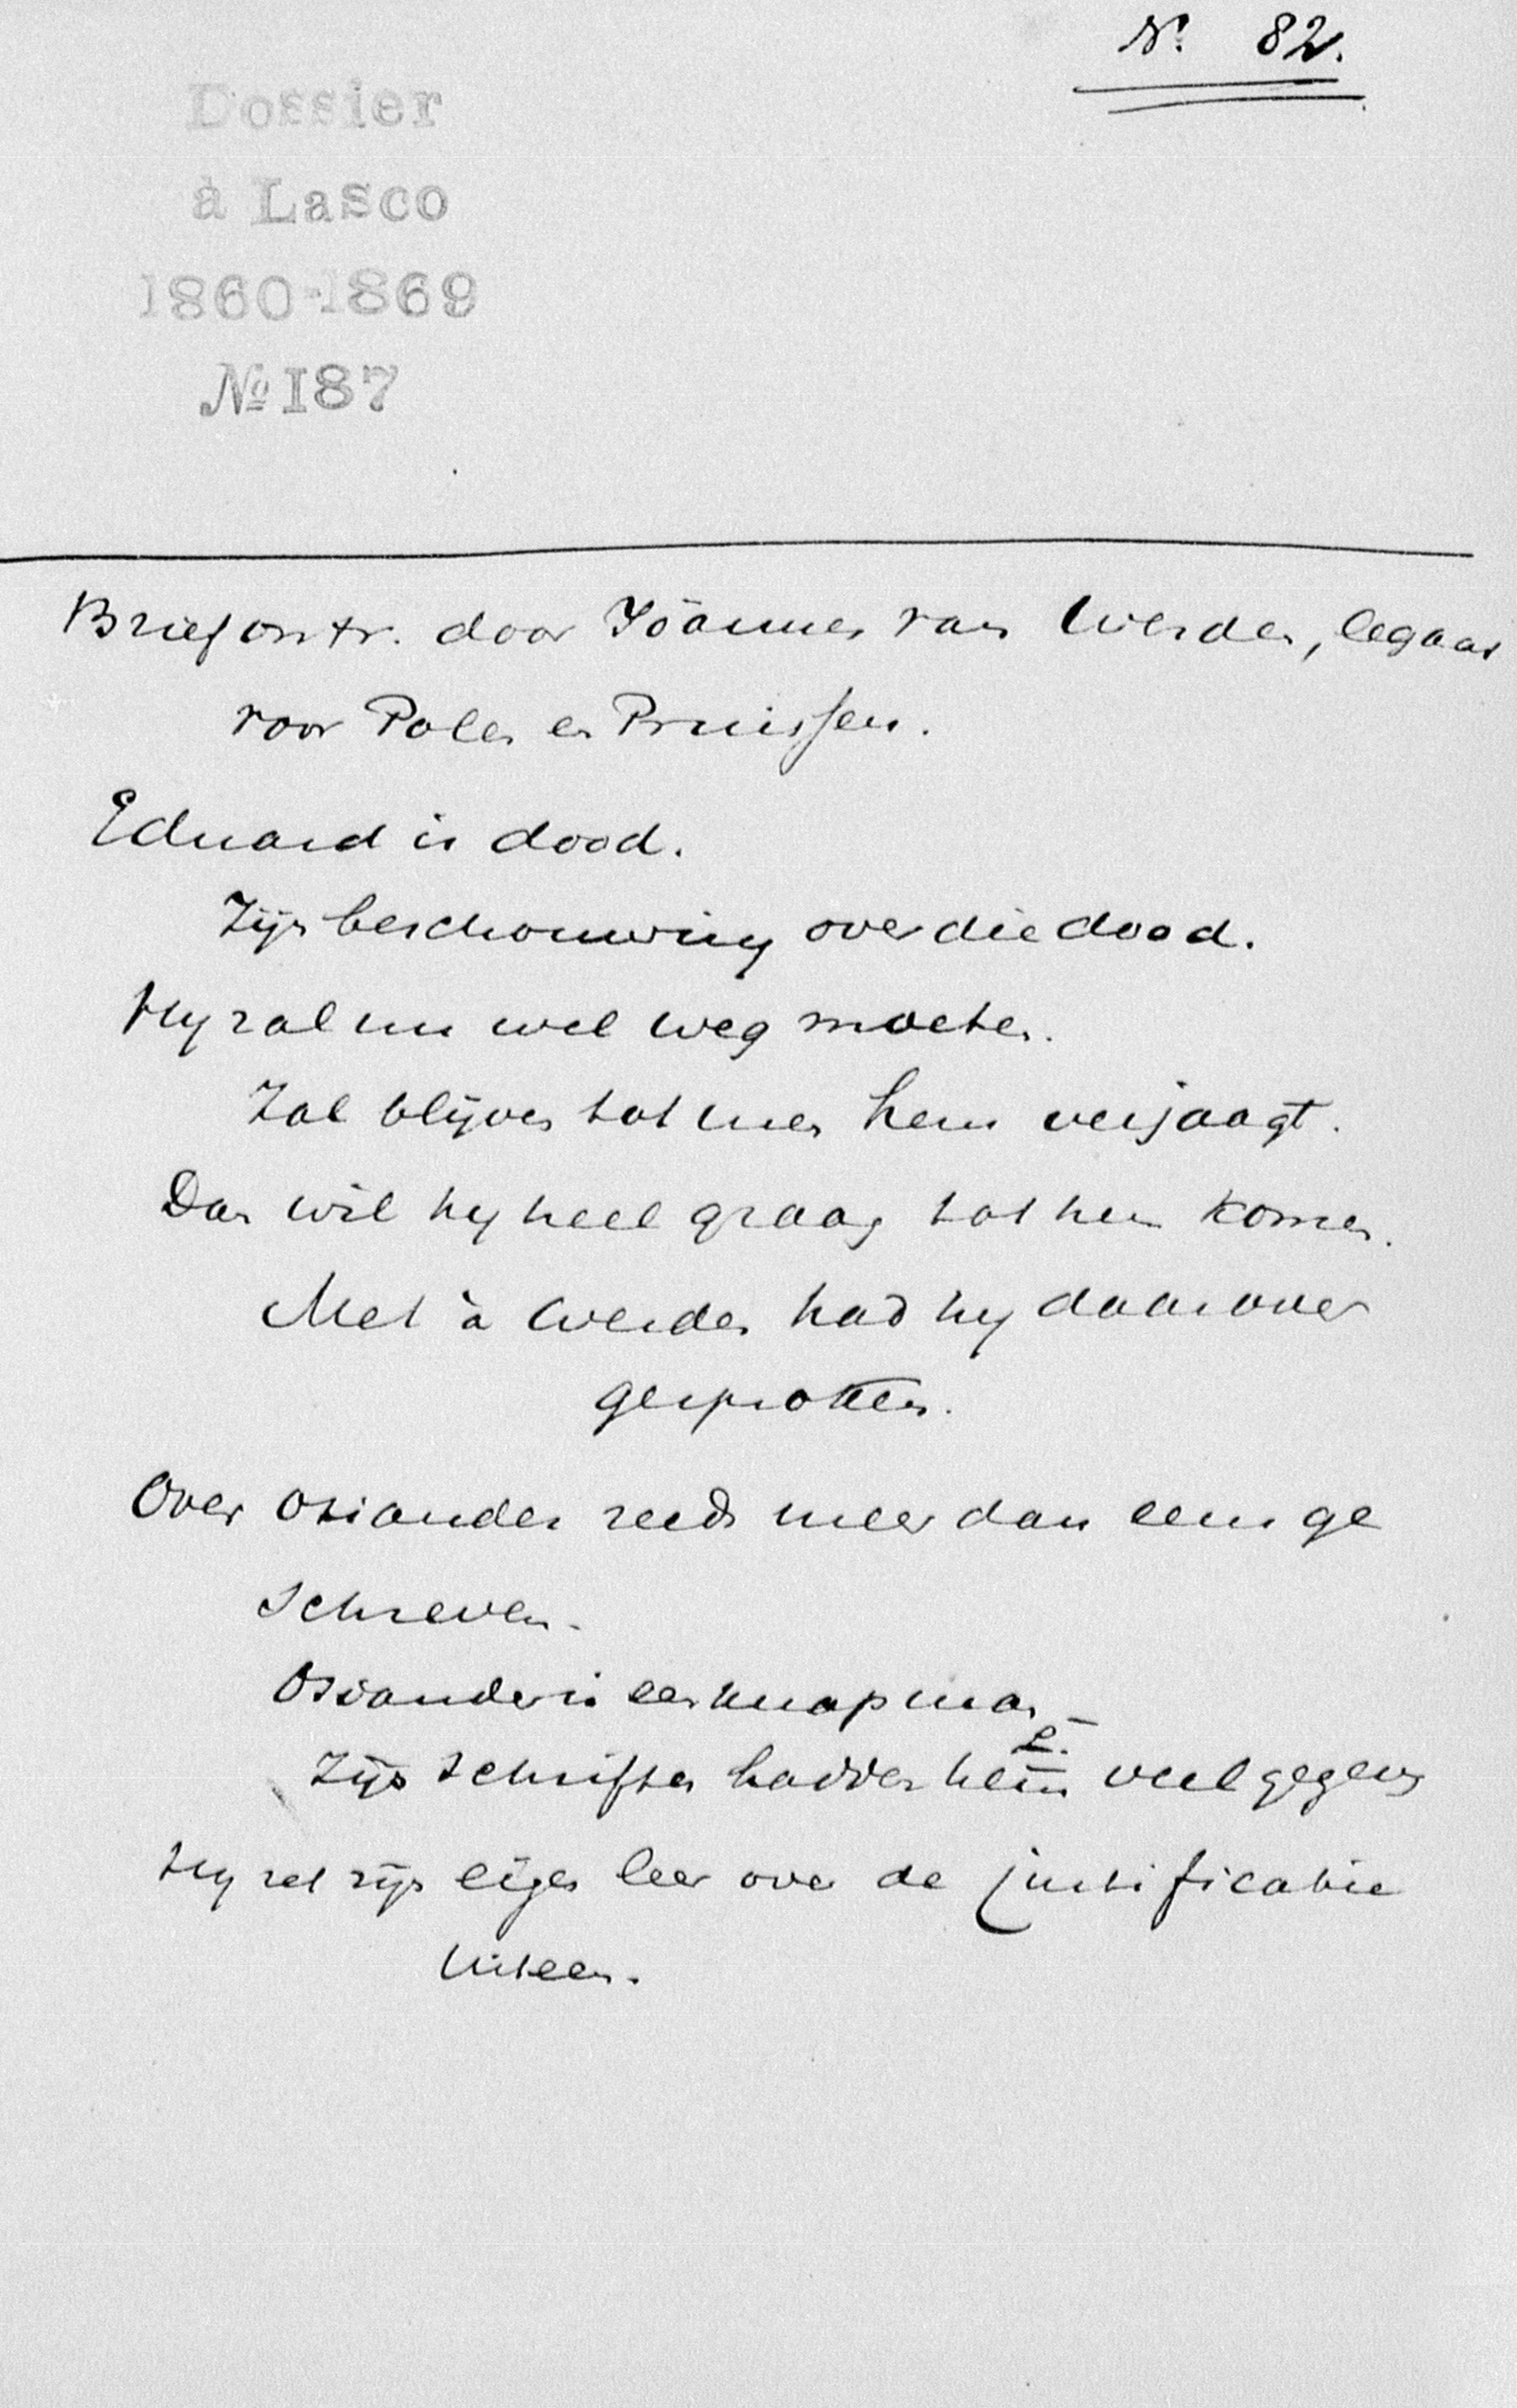 Nº 82.
Dossier
à Lasco
1860-1869
№ 187
Brief ontv. door Jöannes van Werden, legaat
voor Polen en Pruissen.
Eduard is dood.
Zijn beschouwing over die dood.
Hy zal nu wel weg moeten.
Zal blijven tot men hem verjaagt.
Dan wil hy heel graag tot hen komen.
Met à Werden had hy daarover
gesproken.
Over Osiander reeds meer dan eens ge
schreven.
Osiander is een knap man
Zijn schriften hadden hem veel gegeven
Hy zet zijn eigen leer over de justificatie
uiteen.